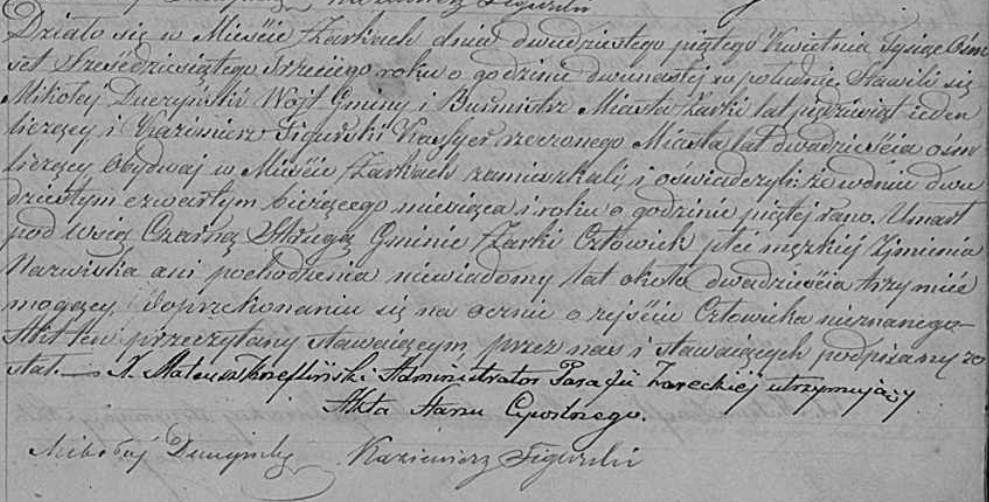 Kazimierz Figurski
Działo się w Mieście Żarkach dnia dwudziestego piątego Kwietnia Tysiąc Ośm
set Sześćdziesiątego trzeciego roku o godzinie dwunastej w południe. Stawili się
Mikołaj Duczyński Wójt Gminy i Burmistrz Miasta Żarki lat pięćdziesiąt ieden
liczący i Kazimierz Figurski Kassyer rzeczonego Miasta lat dwadzieścia ośm
liczący obydwaj w Mieście Żarkach zamieszkali, i oświadczyli: że w dniu dwu
dziestym czwartym bieżącego miesiąca i roku o godzinie piątej rano. Umarł
pod wsią Czarną Strugą Gminie Żarki Człowiek płci męzkiej z Jmienia
Nazwiska ani pochodzenia niewiadomy lat około dwadzieścia trzy mieć
mogący. Po przekonaniu się na ocznie o zejściu Człowieka nieznanego
Akt ten przeczytany stawaiącym, przez nas i stawaiących podpisany zo
stał. X. Mateusz Administrator Parafii Żareckiej utrzymujący
Akta Stanu Cywilnego.
Mikołaj Duczyński Kazimierz Figurski